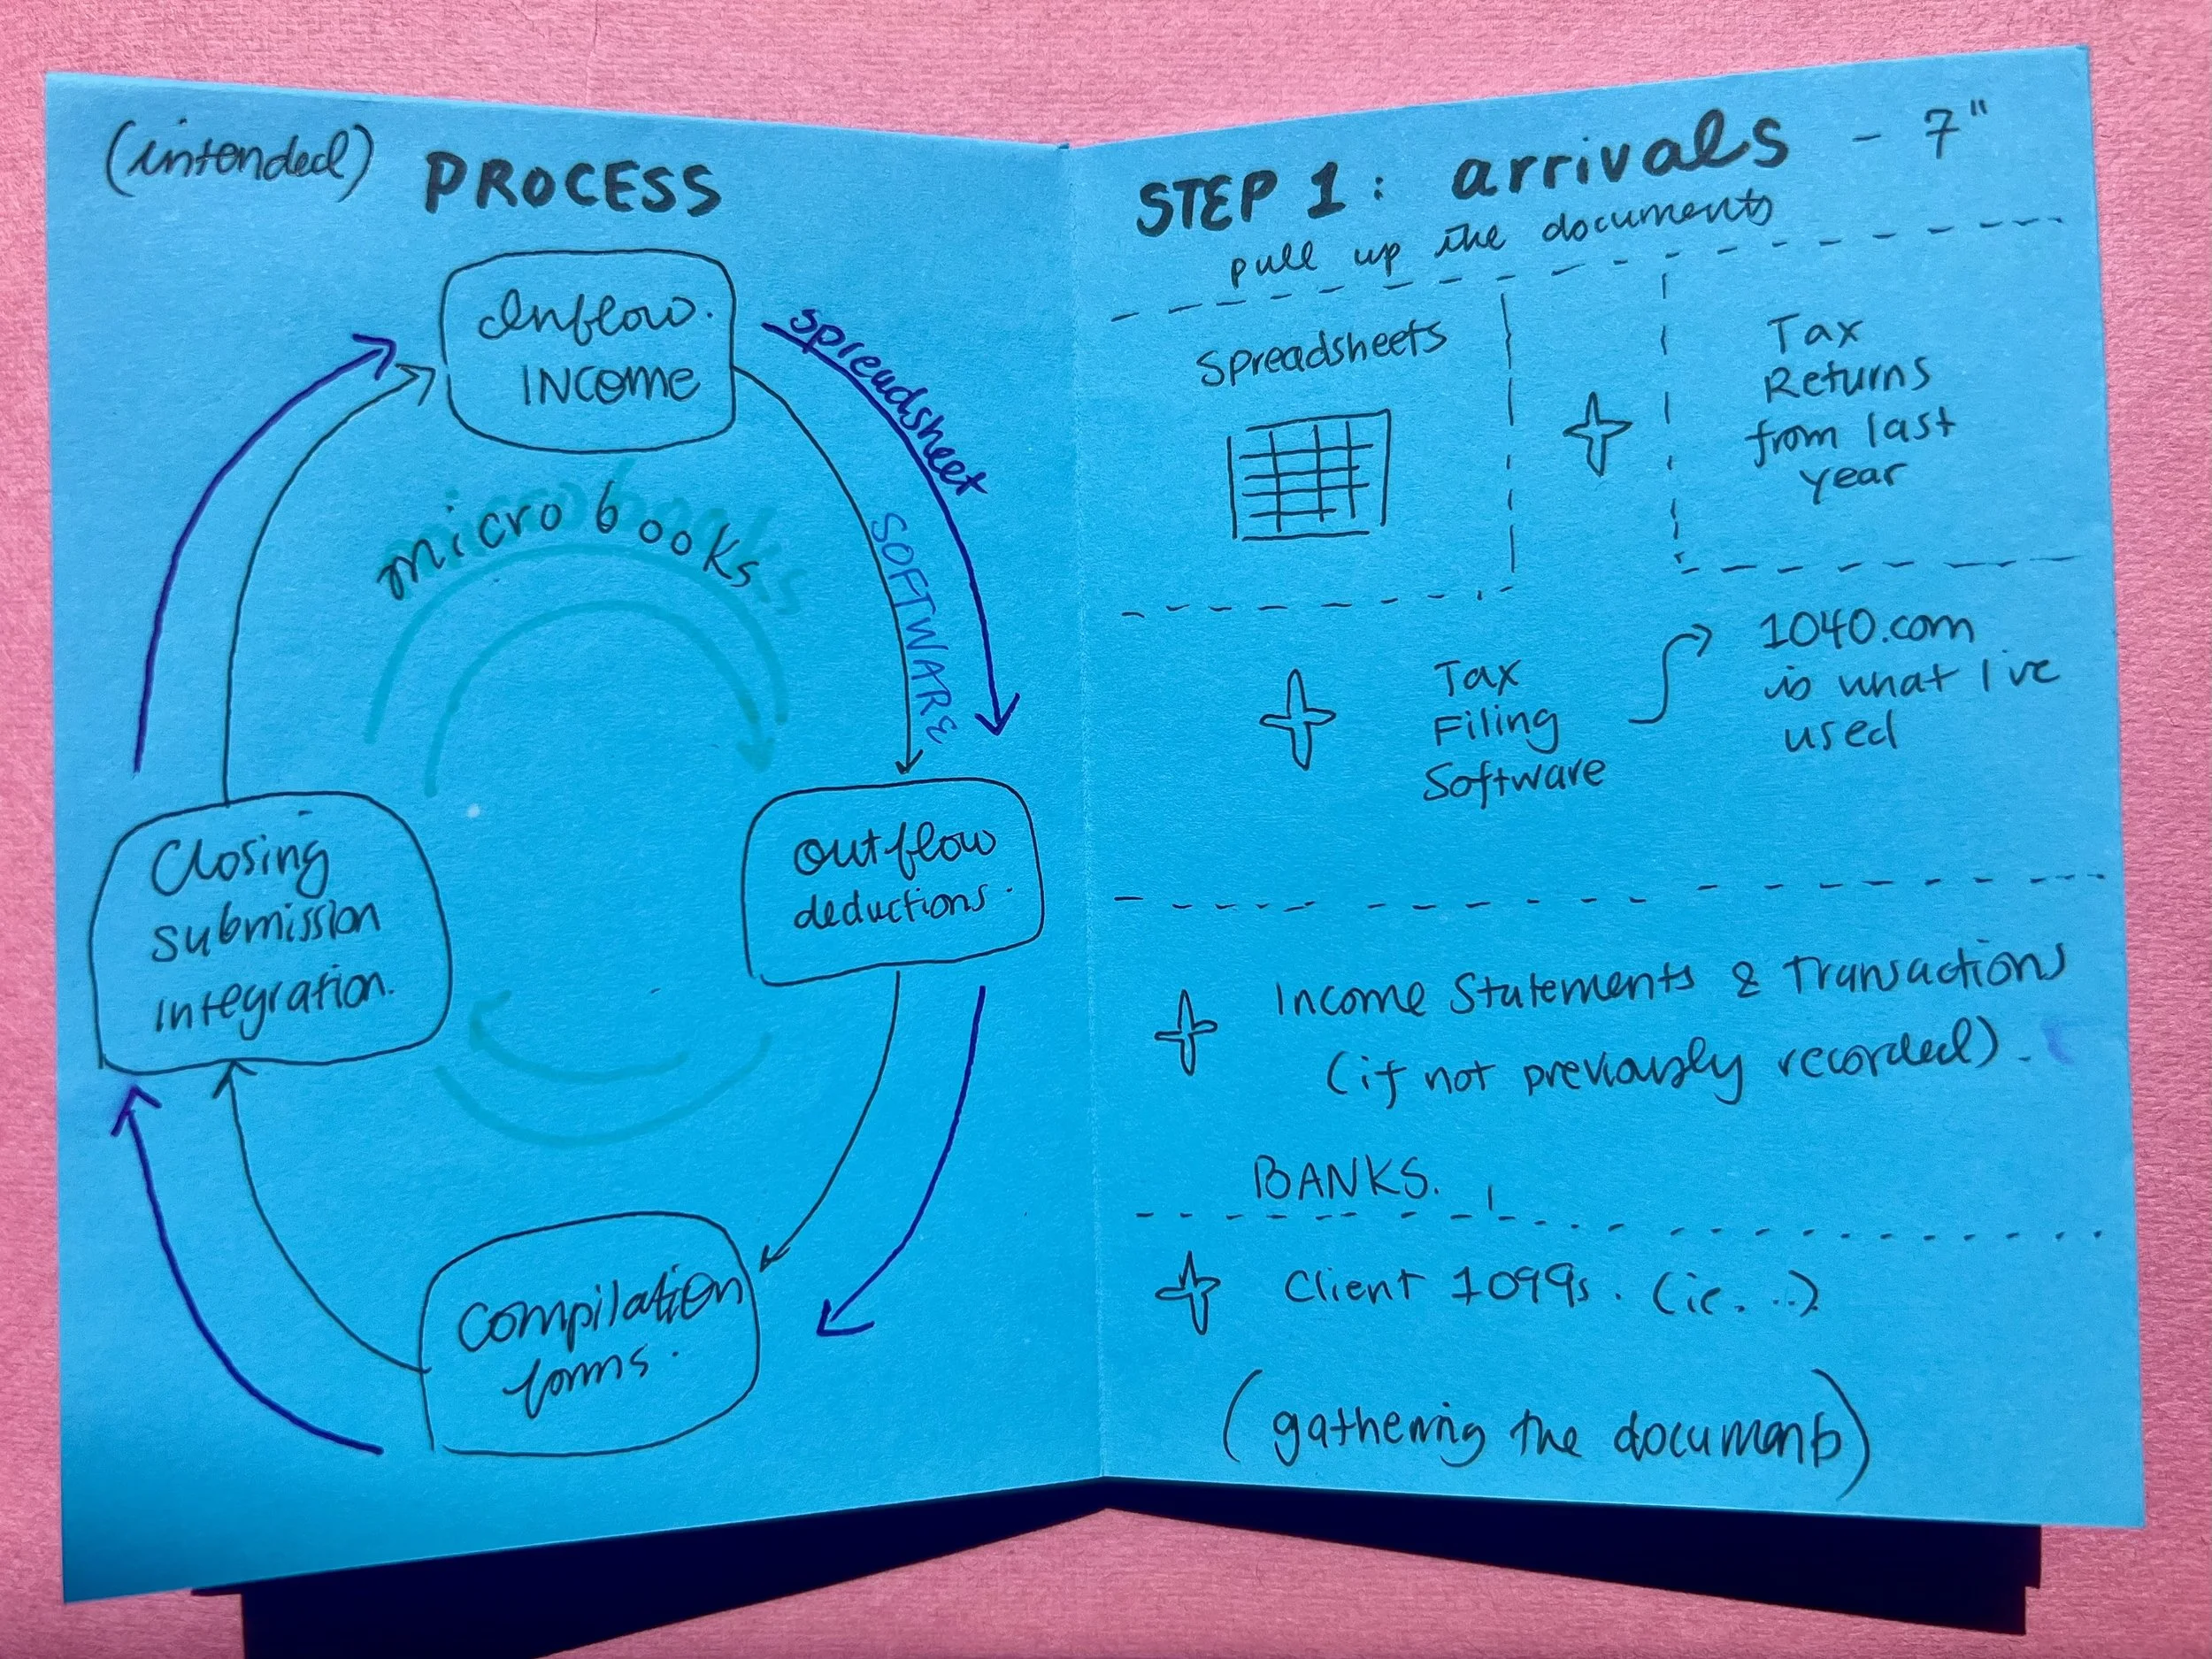 (intended) PROCESS
Inflow.
INCOME
spreadsheet
SOFTWARE
microbooks
outflow
deductions.
Compilation
forms.
Closing
submission
integration.
STEP 1: arrivals - 7"
pull up the documents
Spreadsheets
Tax
Returns
from last
year
Tax
Filing
Software
1040.com
is what I've
used
Income Statements & Transactions
(if not previously recorded).
BANKS.
Client 1099s. (ie...)
(gathering the documents)